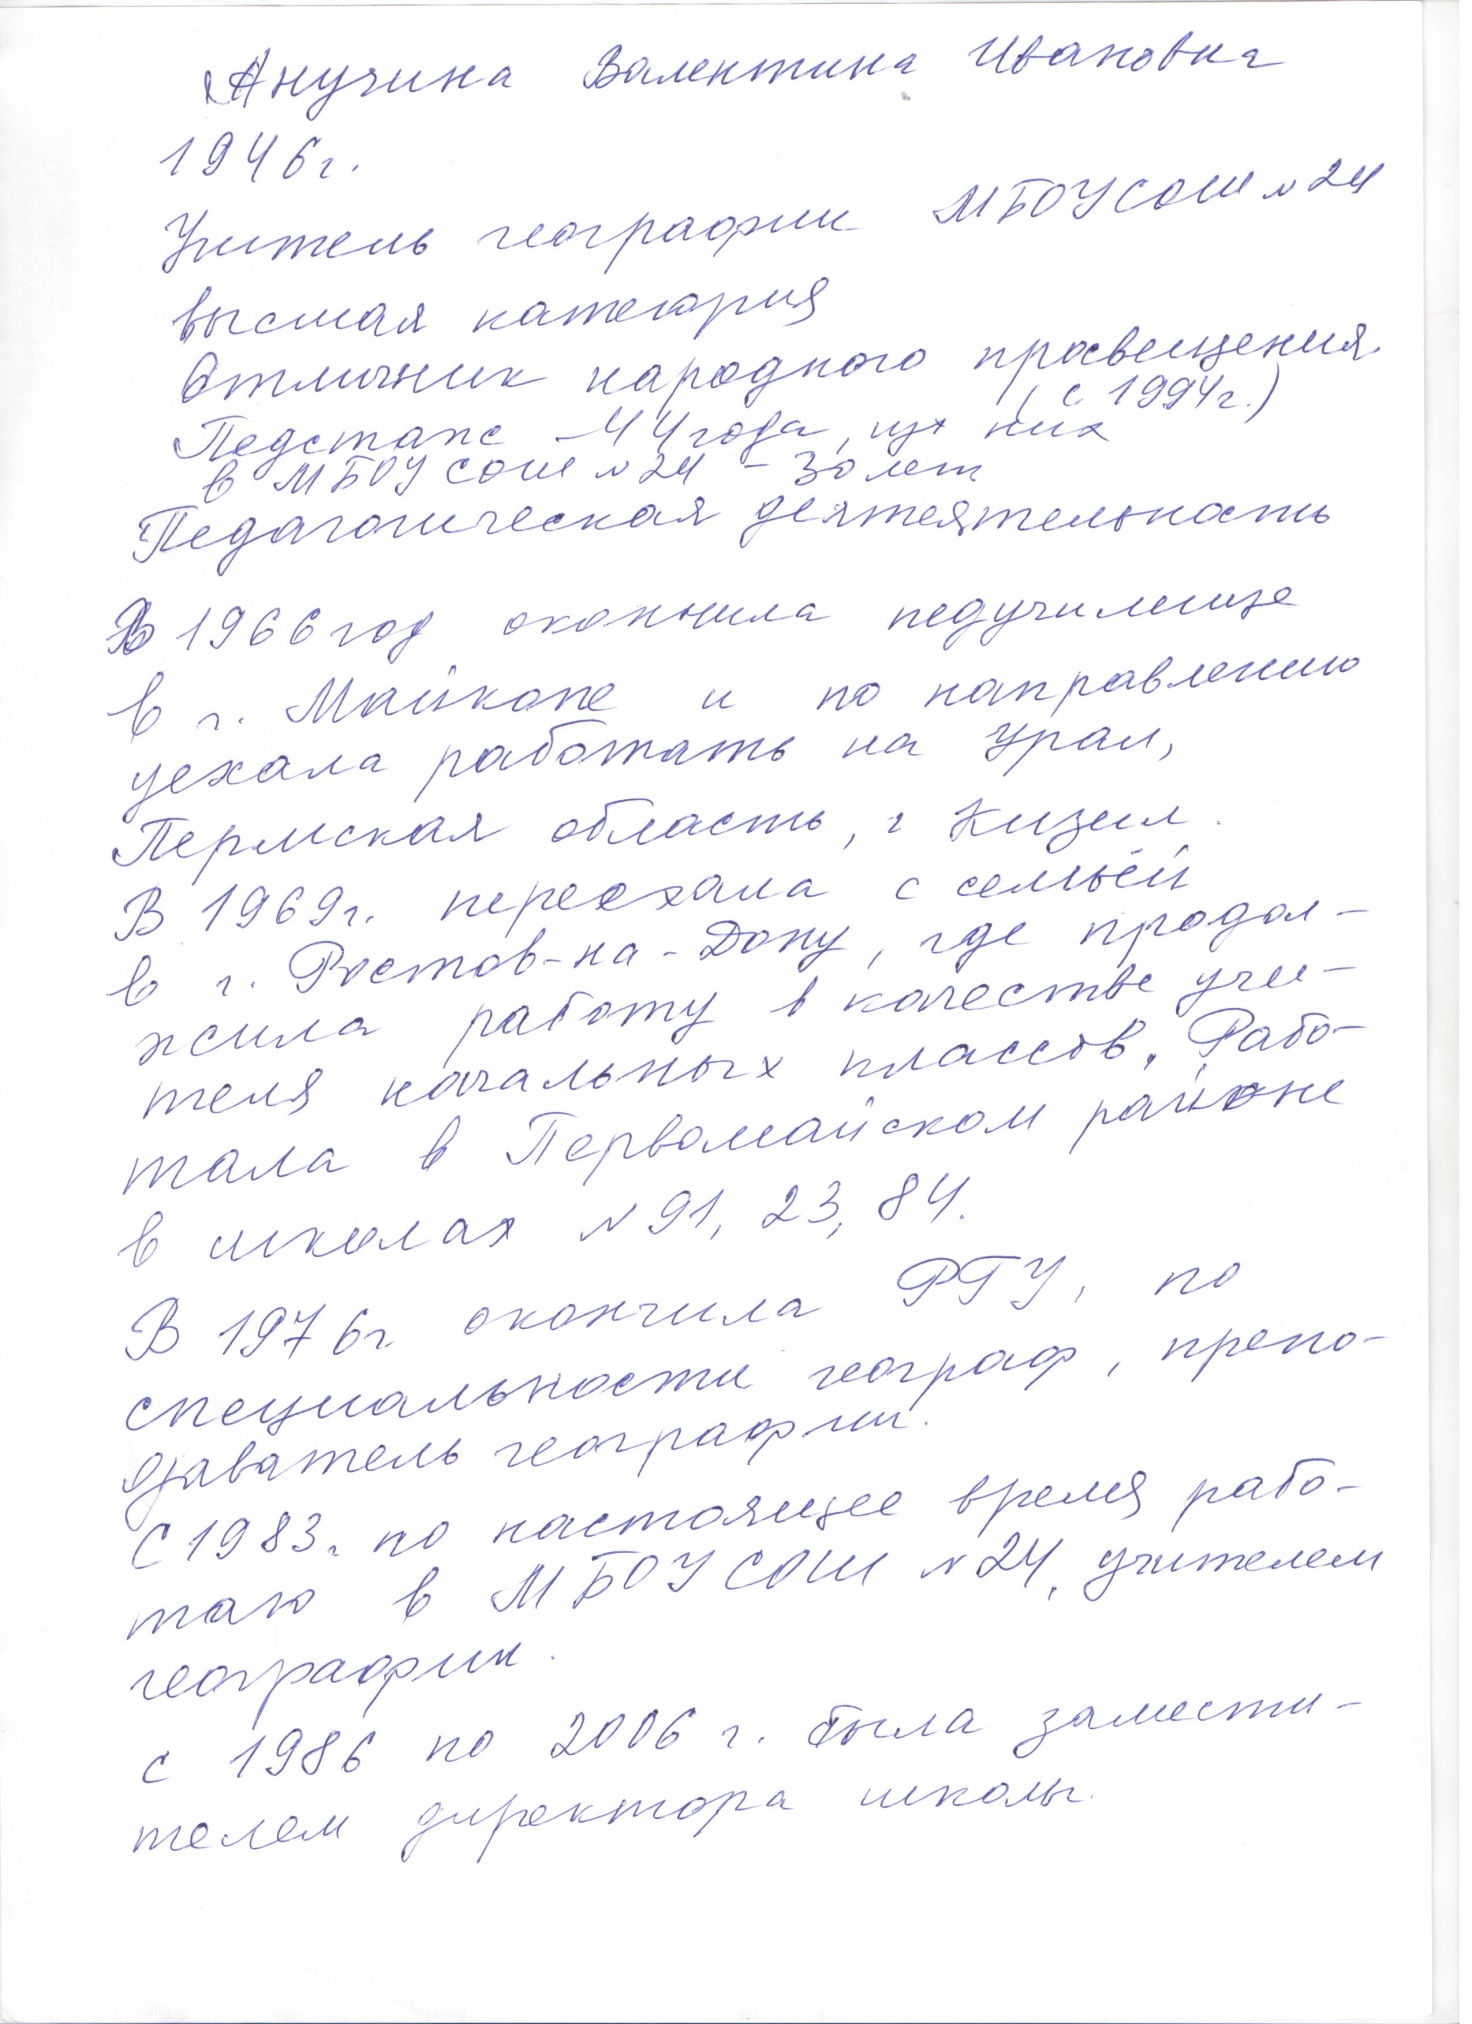 Анучина Валентина Ивановна
1946г.
Учитель географии МБОУСОШ №24
высшая категория
Отличник народного просвещения
(с 1994г.)
Педстаж – 44 года, из них
в МБОУ СОШ №24 – 30 лет
Педагогическая деятеятельность
В 1966 год окончила педучилище
в г. Майкопе и по направлению
уехала работать на Урал,
Пермская область, г Кизел.
В 1969г. переехала с семьёй
в г. Ростов-на-Дону, где продол-
жила работу в качестве учи-
теля начальных классов. Рабо-
тала в Первомайском районе
в школах №91, 23, 84.
В 1976г. окончила РГУ, по
специальности географ, препо-
даватель географии.
С 1983г. по настоящее время рабо-
таю в МБОУ СОШ №24, учителем
географии.
с 1986 по 2006 г. была замести-
телем директора школы.